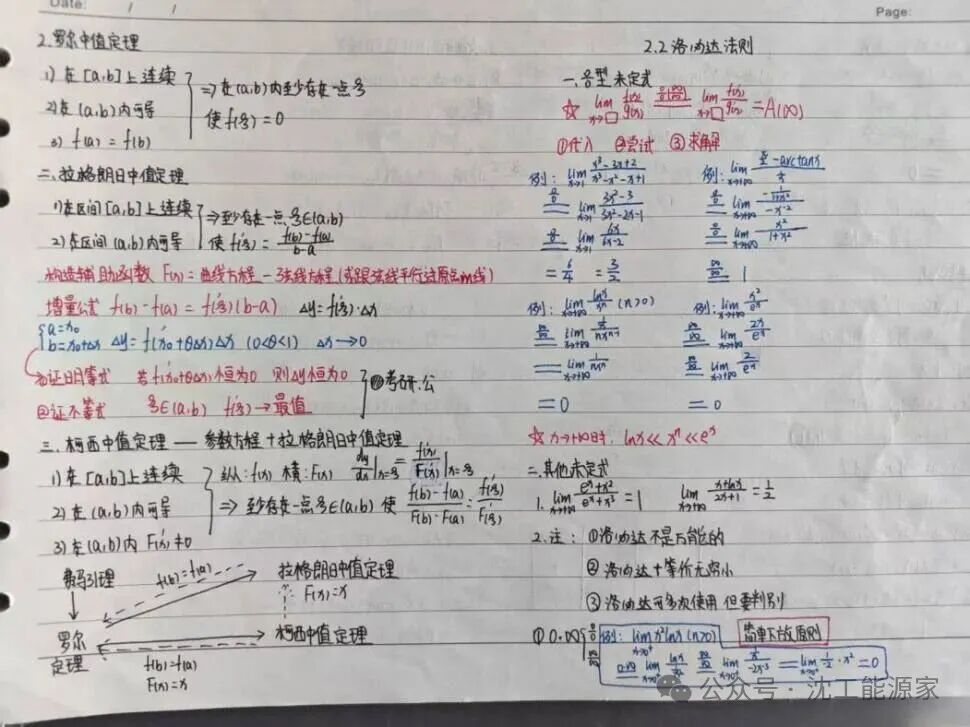 Date: / /
Page:
2.罗尔中值定理
1) 在[a,b]上连续
2) 在(a,b)内可导
3) f(a)=f(b)
⇒在(a,b)内至少存在一点ξ
使f'(ξ)=0
二.拉格朗日中值定理
1) 在区间[a,b]上连续
2) 在区间(a,b)内可导
⇒至少存在一点ξ∈(a,b)
使f'(ξ)=\frac{f(b)-f(a)}{b-a}
构造辅助函数 F(x)=曲线方程-弦线方程(或跟弦线平行过原点的线)
增量公式 f(b)-f(a)=f'(ξ)(b-a) Δy=f'(ξ)·Δx
{a=x₀
b=x₀+Δx Δy=f'(x₀+θΔx)Δx (0<θ<1) Δx→0
①证明等式 若f'(x₀+θΔx)恒为0 则Δy恒为0
②证不等式 ξ∈(a,b) f'(ξ)→最值
考研.公
三.柯西中值定理——参数方程+拉格朗日中值定理
1) 在[a,b]上连续
2) 在(a,b)内可导
3) 在(a,b)内F'(x)≠0
纵:f(x) 横:F(x) \frac{dy}{dx}|x=ξ=\frac{f'(x)}{F'(x)}|x=ξ
⇒至少存在一点ξ∈(a,b)使\frac{f(b)-f(a)}{F(b)-F(a)}=\frac{f'(ξ)}{F'(ξ)}
费马引理
罗尔
定理
f(b)=f(a)
拉格朗日中值定理
F(x)=x
柯西中值定理
f(b)=f(a)
F(x)=x
2.2洛必达法则
一.\frac{0}{0}型未定式
☆ \lim_{x→□}\frac{f(x)}{g(x)} = \lim_{x→□}\frac{f'(x)}{g'(x)}=A(∞)
①代入 ②尝试 ③求解
例:\lim_{x→1}\frac{x³-3x+2}{x³-x²-x+1}
\frac{0}{0}= \lim_{x→1}\frac{3x²-3}{3x²-2x-1}
\frac{0}{0}= \lim_{x→1}\frac{6x}{6x-2}
=\frac{6}{4} =\frac{3}{2}
例:\lim_{x→+∞}\frac{\frac{π}{2}-arctanx}{\frac{1}{x}}
\frac{0}{0}= \lim_{x→+∞}\frac{-\frac{1}{1+x²}}{-x^{-2}}
\frac{0}{0}= \lim_{x→+∞}\frac{x²}{1+x²}
\frac{∞}{∞}= 1
例:\lim_{x→+∞}\frac{lnx}{xⁿ} (n>0)
\frac{∞}{∞}= \lim_{x→+∞}\frac{\frac{1}{x}}{nx^{n-1}}
=\lim\frac{1}{nxⁿ}
=0
例:\lim_{x→+∞}\frac{x²}{eˣ}
\frac{∞}{∞}= \lim_{x→+∞}\frac{2x}{eˣ}
\frac{∞}{∞}= \lim_{x→+∞}\frac{2}{eˣ}
=0
☆x→+∞时,lnx<<xⁿ<<eˣ
二.其他未定式
1.\lim_{x→+∞}\frac{eˣ+x²}{eˣ+x³}=1 \lim_{x→+∞}\frac{x+lnx}{2x+1}=\frac{1}{2}
2.注:①洛必达不是万能的
②洛必达+等价无穷小
③洛必达可多次使用 但要判别
①0·∞{\frac{0}{0} \frac{∞}{∞}
例:\lim_{x→0⁺}x²lnx(n>0)
简单不放原则
0·∞= \lim_{x→0⁺}\frac{lnx}{x^{-2}} \frac{∞}{∞}= \lim_{x→0⁺}\frac{\frac{1}{x}}{-2x^{-3}}=\lim_{x→0⁺}-\frac{1}{2}·x²=0
公众号·沈工能源家